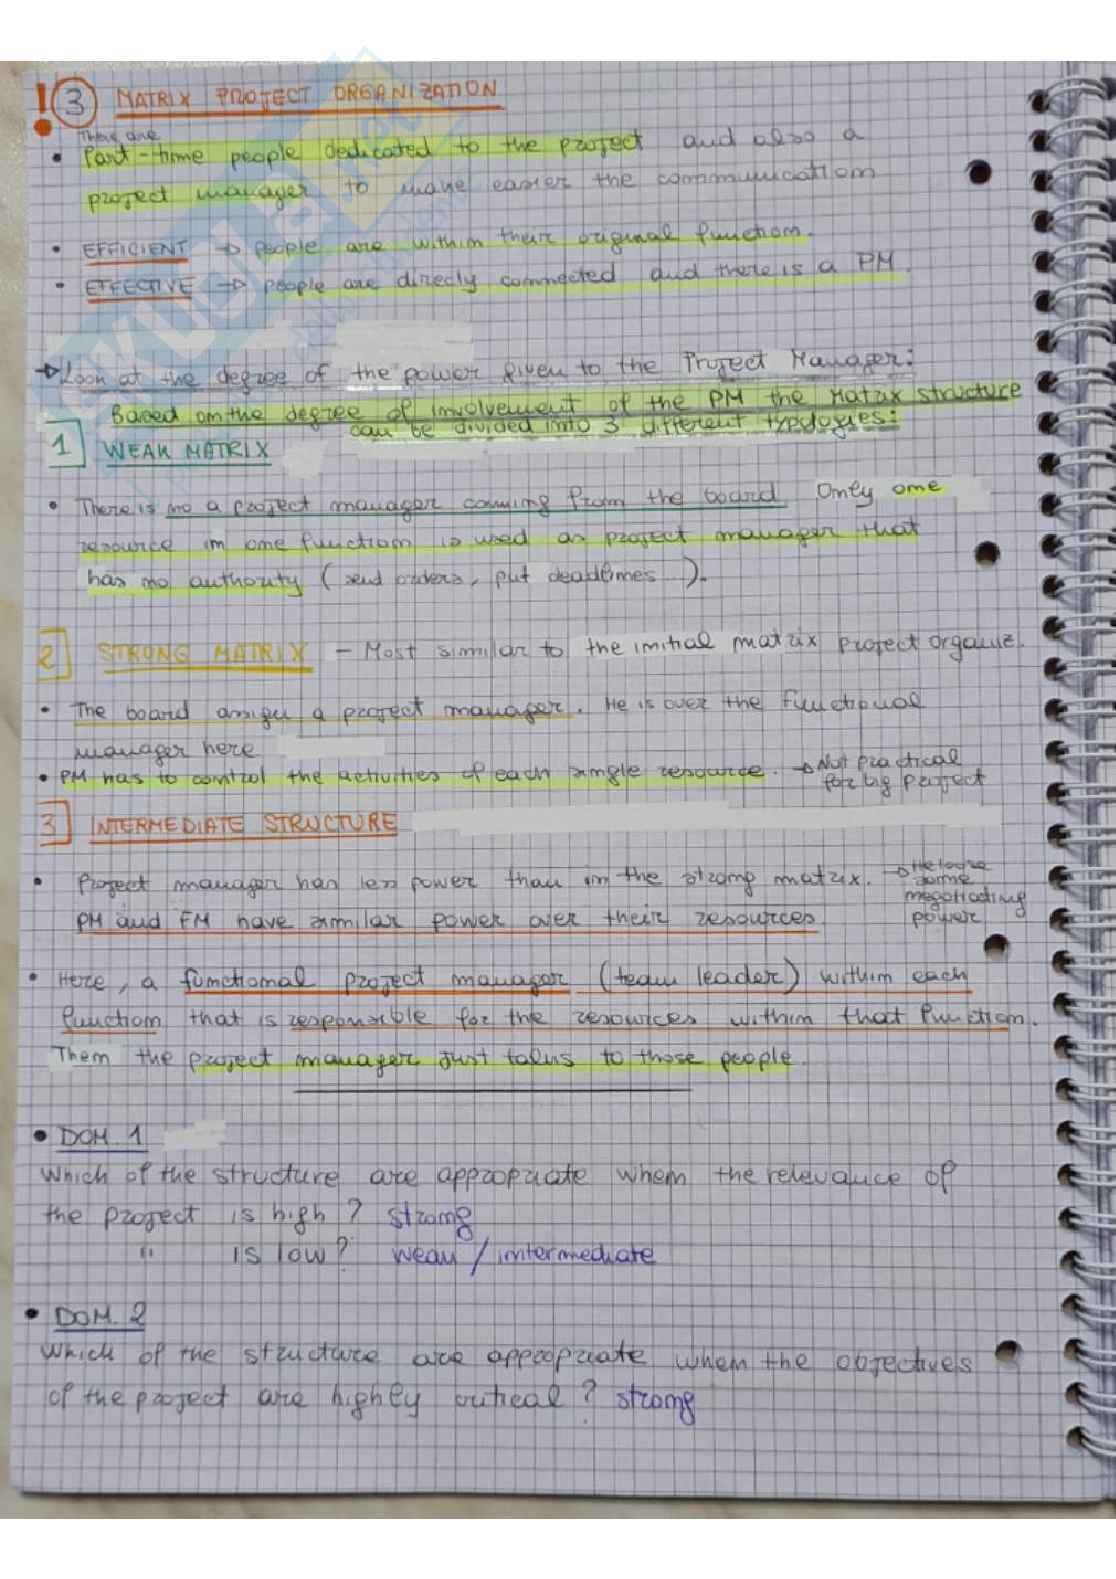 ! 3 MATRIX PROJECT ORGANIZATION
There are
• Part-time people dedicated to the project and also a
project manager to make easier the communication
• EFFICIENT → people are within their original function.
• EFFECTIVE → people are direcly connected and there is a PM.
→ Look at the degree of the power given to the Project Manager:
Based on the degree of involvement of the PM the Matrix structure
can be divided into 3 different typologies:
1 WEAK MATRIX
• There is no a project manager coming from the board Only one
resource in one function is used as project manager that
has no authority (send orders, put deadlines ).
2 STRONG MATRIX - Most similar to the initial matrix project organiz.
• The board assign a project manager. He is over the functional
manager here
• PM has to control the activities of each single resource. → Not practical
for big project
3 INTERMEDIATE STRUCTURE
• Project manager has less power than in the strong matrix. → He loose
some
negotiading
power
PM and FM have similar power over their resources
• Here, a functional project manager (team leader) within each
function that is responsible for the resources within that function.
Then the project manager just talks to those people.
• DOM. 1
Which of the structure are appropriate when the relevance of
the project is high? strong
" is low? weak / intermediate
• DOM. 2
Which of the structure are appropriate when the objectives
of the project are highly critical? strong